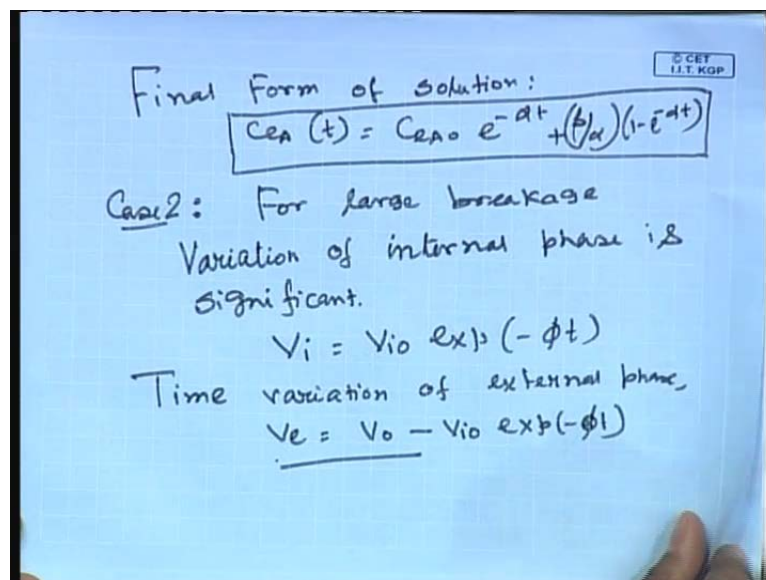 © CET
I.I.T. KGP
Final Form of solution:
CeA (t) = CeA0 e^-αt + (β/α)(1-e^-αt)
Case 2: For large breakage
Variation of internal phase is
significant.
Vi = Vio exp (- ϕt)
Time variation of external phase,
Ve = Vo - Vio exp(-ϕt)